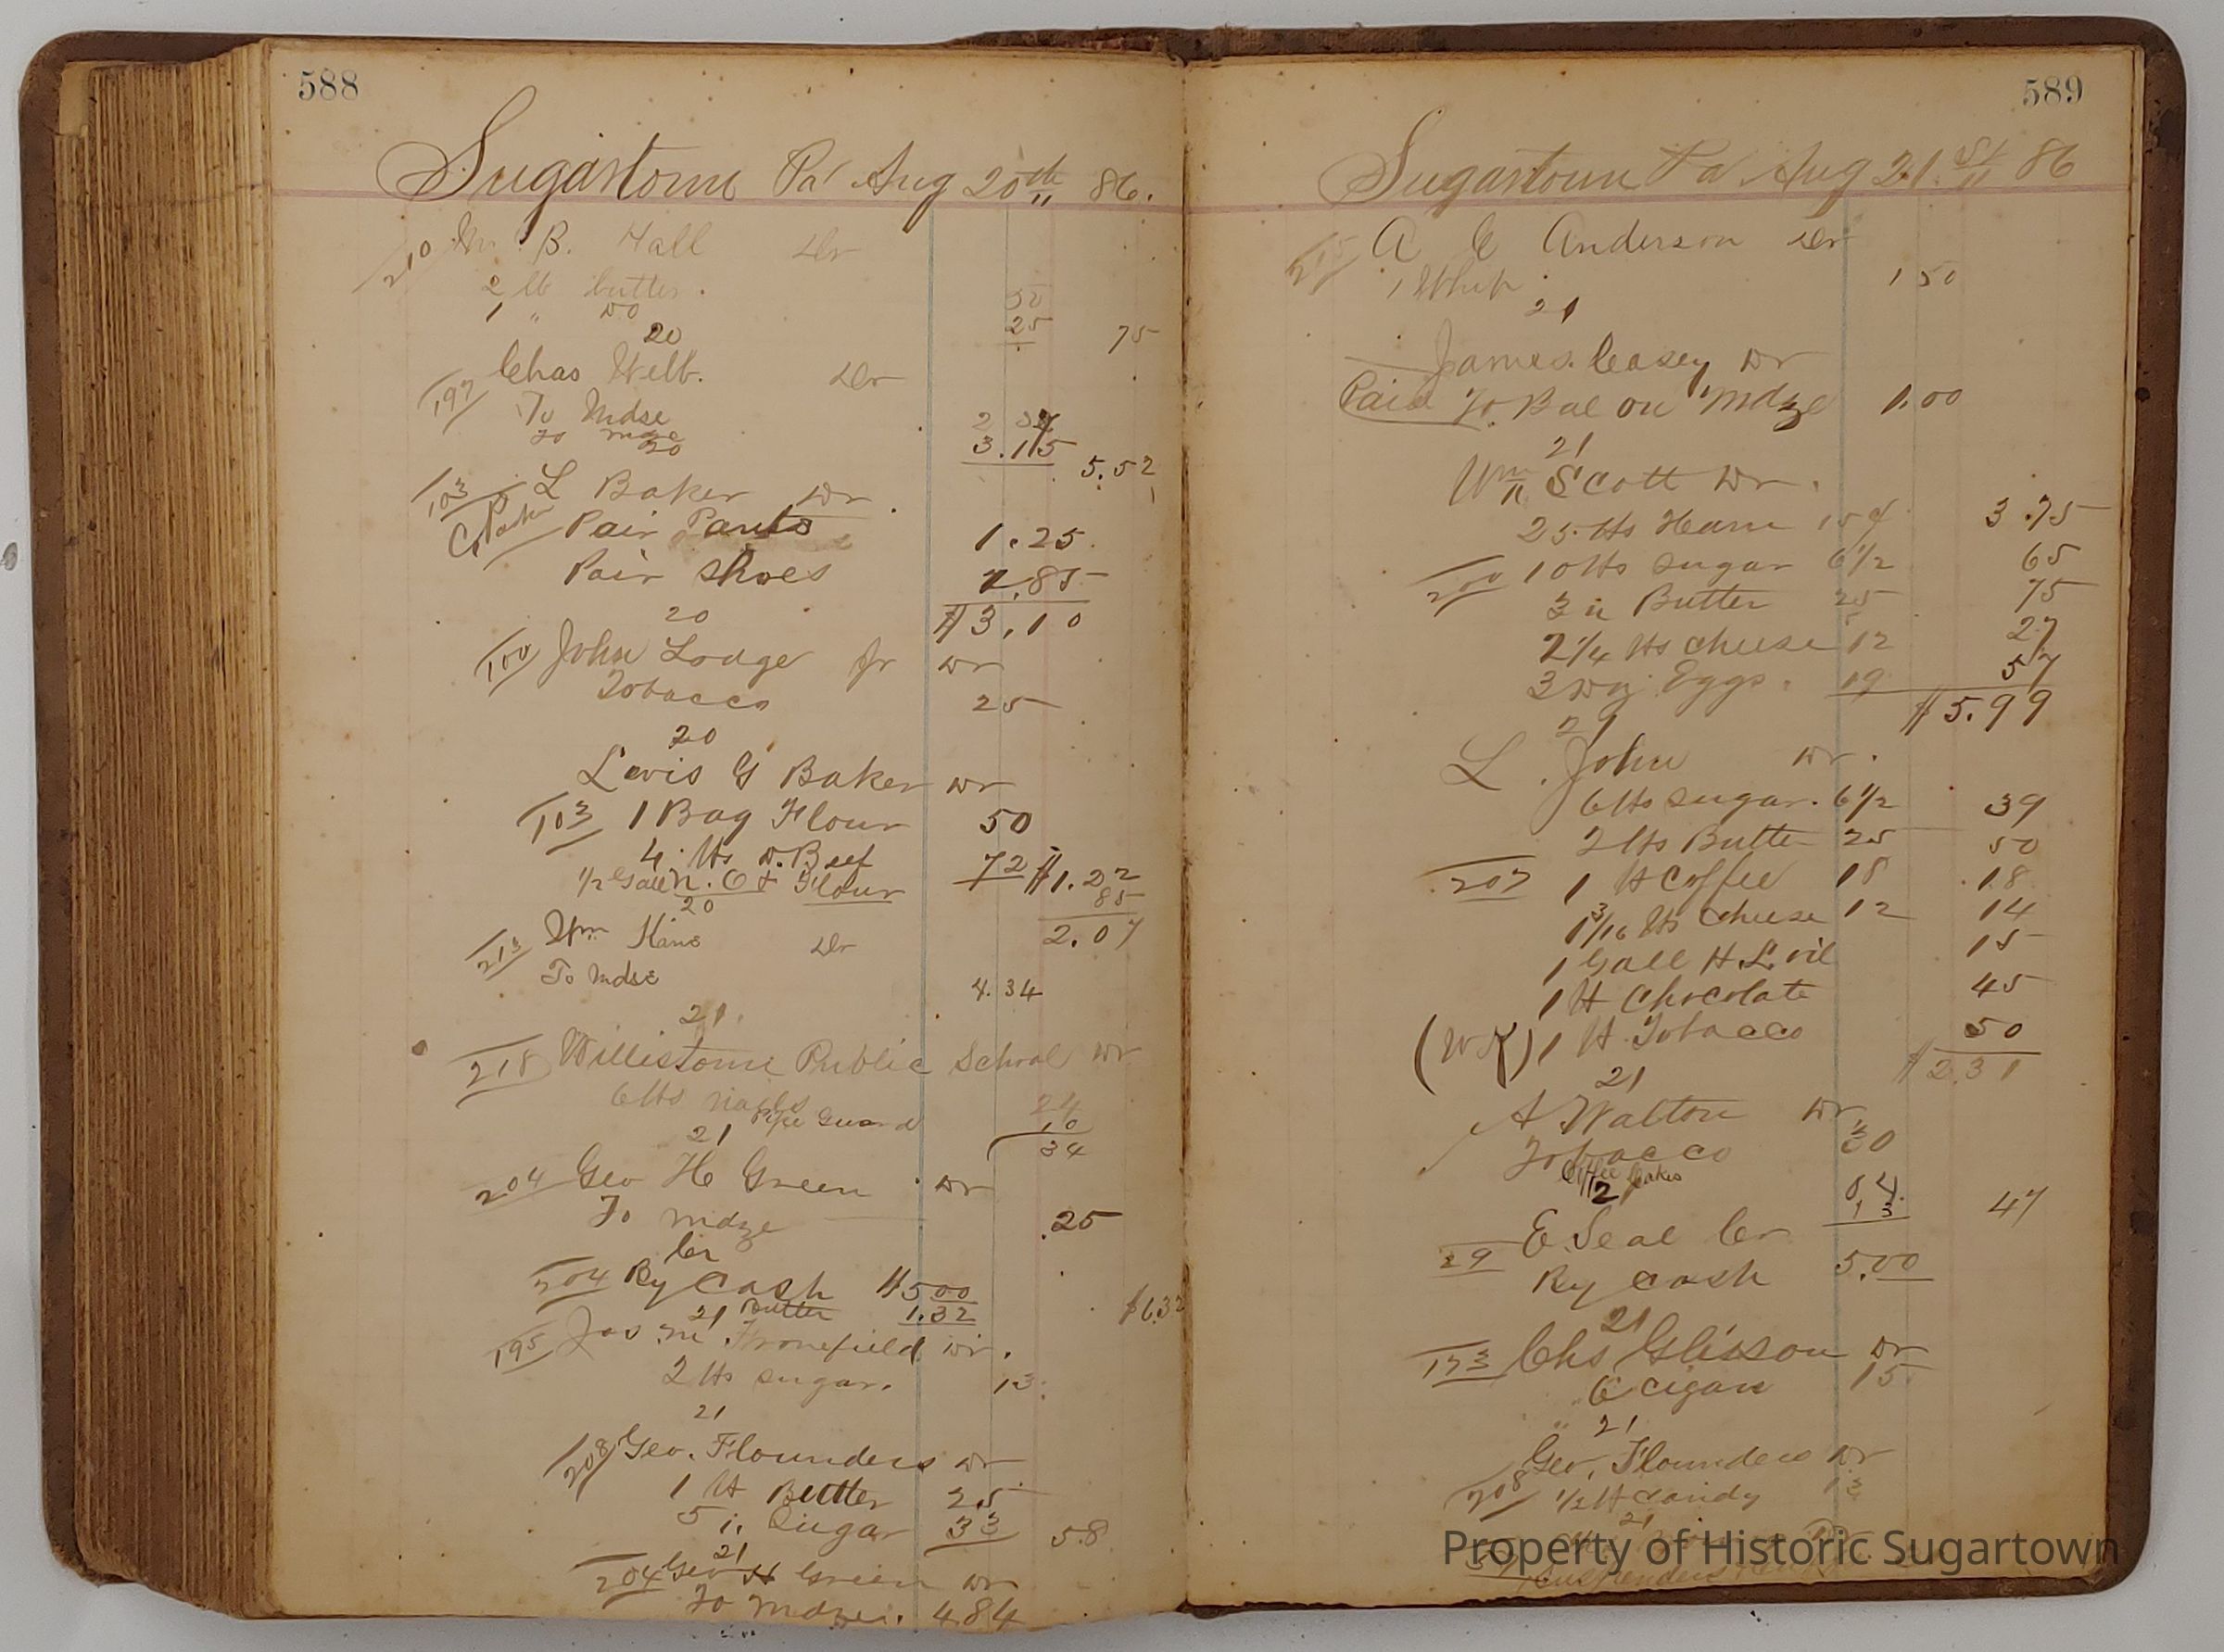 588
Sugartown Pa Aug 20th 86.
210 Wm. B. Hall Dr
2 lb butter. 50
1 " Do 25 75
20
197 Chas Webb. Dr
To Mdse 2
To Mdse 3.15 5.52
20
103 L Baker Dr
Pair Pants 1.25
Pair Shoes 1.85
$3.10
20
100 John Lodge Jr Dr
Tobacco 25
20
Lewis G Baker Dr
103 1 Bag Flour 50
4 lbs D. Beef 72 $1.22
1/2 Gall N. O & Flour 85
20 2.07
213 Wm King Dr
To Mdse 4.34
21
218 Willistown Public School Dr
6 lbs nails 24
Pipe Guard 10
21 34
204 Geo H Green Dr
To Mdze .25
Cr
204 By Cash $5.00
Butter 1.32 $6.32
21
195 Jas M. Fronefield Dr.
2 lbs sugar. 13
21
208 Geo. Flounders Dr
1 lb Butter 25
5 " Sugar 33 58
21
204 Geo H Green Dr
To Mdze. 4.84
589
Sugartown Pa Aug 21st 86
A C Anderson Dr
1 Whip 1 50
21
James Casey Dr
Paid To Bal on Mdze 1.00
21
Wm Scott Dr.
25 lbs Ham 15¢ 3.75
200 10 lbs sugar 6 1/2 65
3 " Butter 25 75
2 1/4 lbs cheese 12 27
3 Doz Eggs. 19 57
$5.99
21
L. John Dr.
6 lbs sugar. 6 1/2 39
2 lbs Butter 25 50
207 1 lb Coffee 18 18
1 3/16 lbs Cheese 12 14
1 Gall H.L. oil 15
1 lb Chocolate 45
1 lb Tobacco 50
$2.31
21
A Walton Dr
Tobacco 30
Coffee Cakes 04
21 13 47
29 E. Seal Cr
By Cash 5.00
21
173 Chs Glisson Dr
6 cigars 15
21
Geo. Flounders Dr
208 1/2 lb candy 13
21
Suspenders
Property of Historic Sugartown